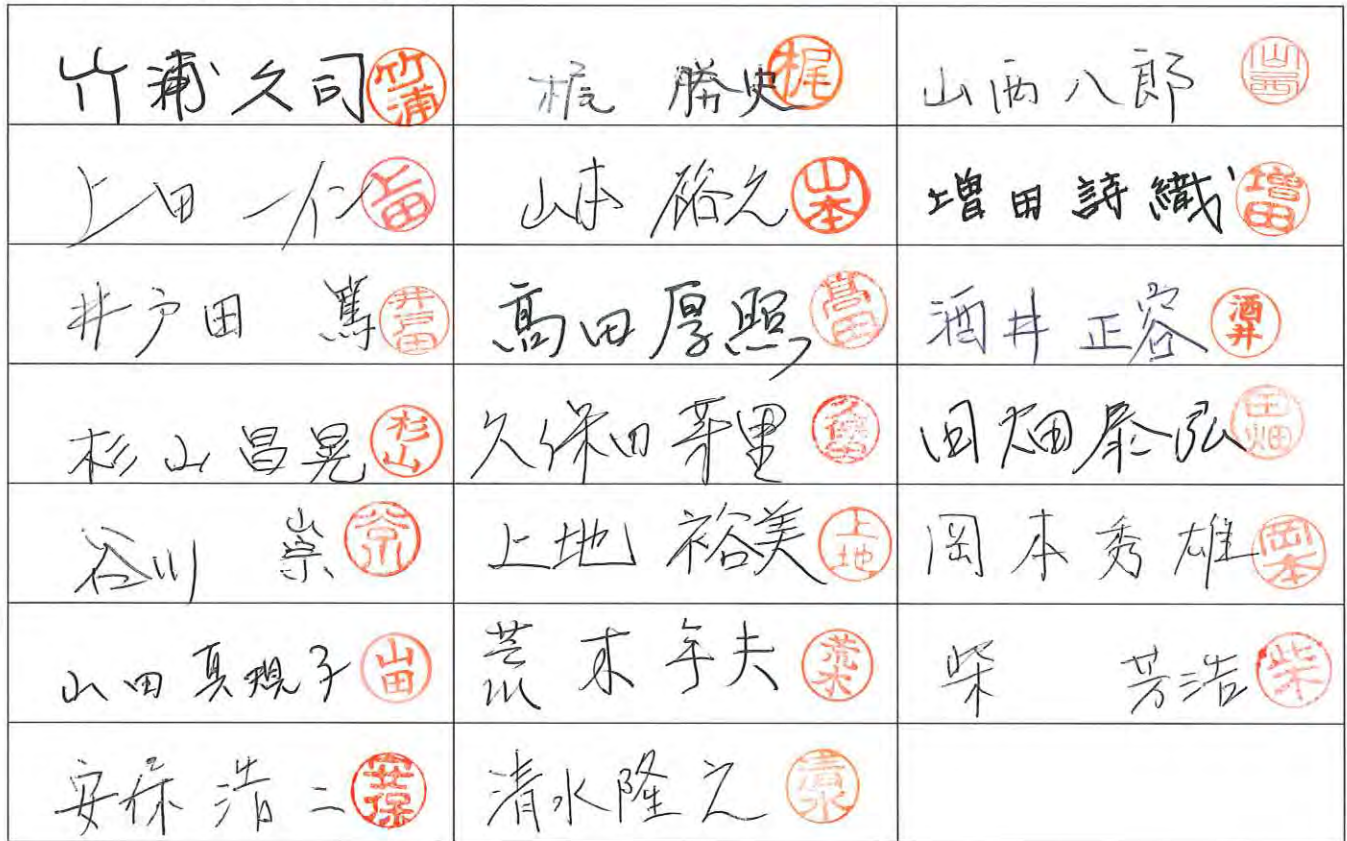 竹浦久司 竹浦 梶 勝史 梶 山西八郎 山西
上田 一仁 上田 山本 裕之 山本 増田詩織 増田
井戸田 篤 井戸田 高田厚照 高田 酒井正容 酒井
杉山昌晃 杉山 久保田芽里 久保田 田畑泰弘 田畑
谷川 崇 谷川 上地 裕美 上地 岡本秀雄 岡本
山田真規子 山田 荒木年夫 荒木 柴 芳浩 柴
安保浩二 安保 清水隆之 清水